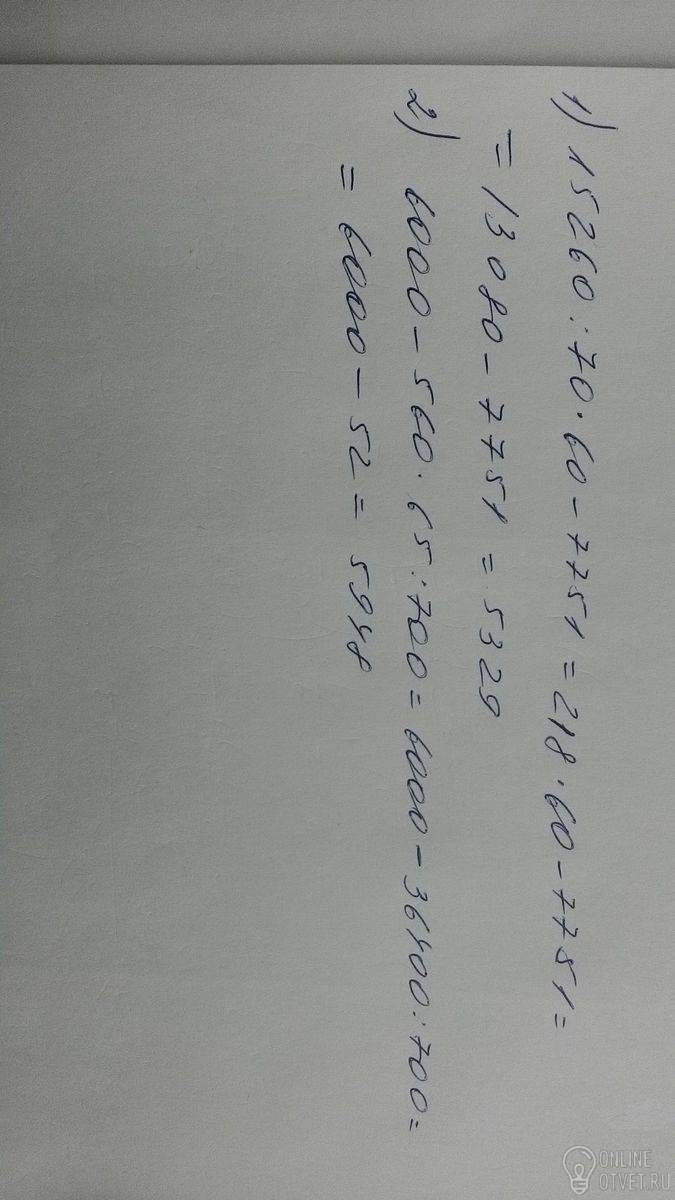 1) 15260 : 70 · 60 - 7751 = 218 · 60 - 7751 =
= 13080 - 7751 = 5329
2) 6000 - 560 · 65 : 700 = 6000 - 36400 : 700 =
= 6000 - 52 = 5948
ONLINE
OTVET.RU